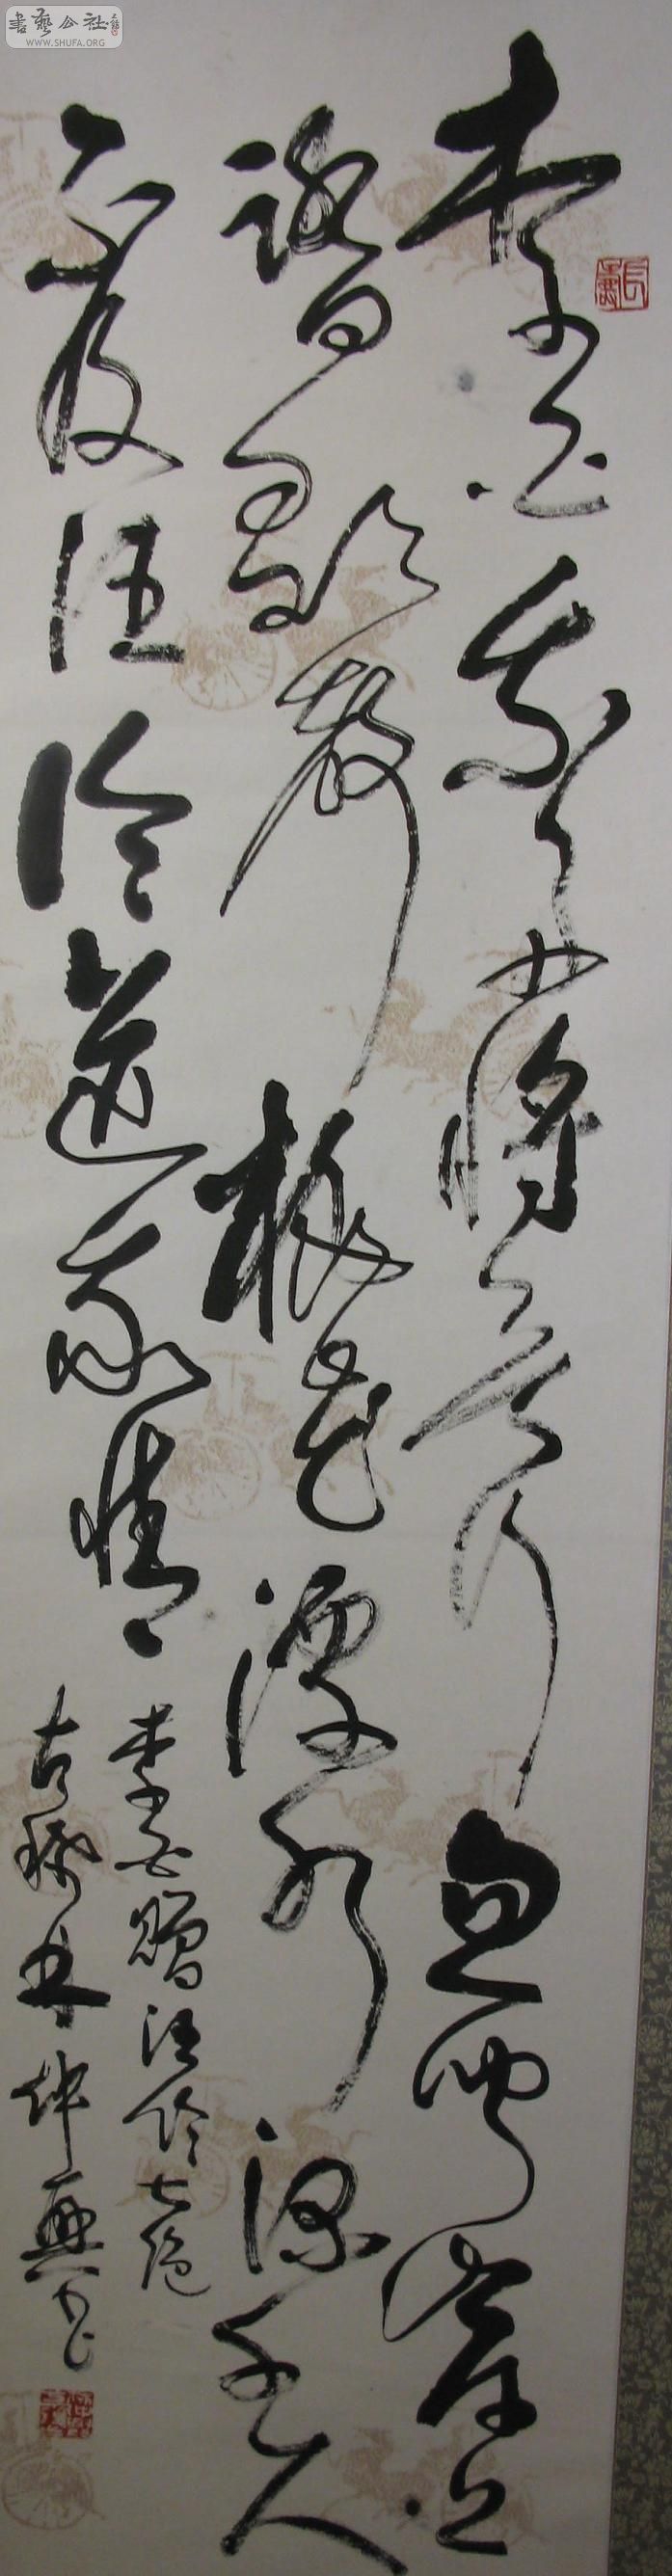 書藝公社
WWW.SHUFA.ORG
李白乘舟將欲行忽聞岸上
踏歌聲桃花潭水深千尺
不及汪倫送我情
李白贈汪倫七絕